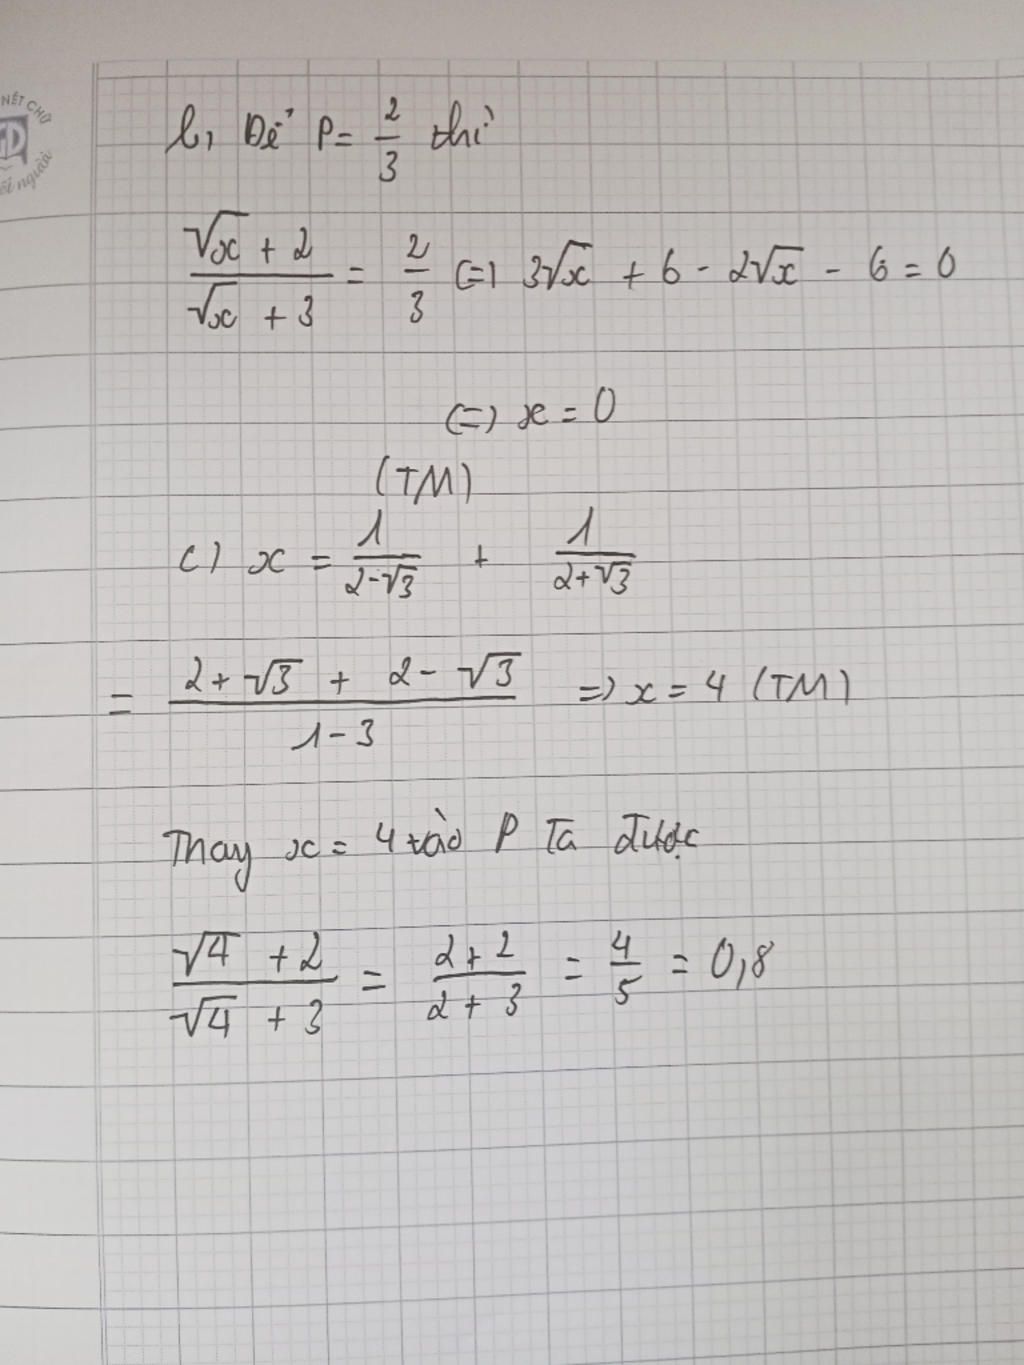 NÉT CHỮ
b, Để P = 2/3 thì
(√x + 2)/(√x + 3) = 2/3 (=) 3√x + 6 - 2√x - 6 = 0
(=) x = 0
(TM)
c) x = 1/(2-√3) + 1/(2+√3)
= (2+√3 + 2-√3)/(1-3) => x = 4 (TM)
Thay x = 4 vào P Ta được
(√4 + 2)/(√4 + 3) = (2+2)/(2+3) = 4/5 = 0,8